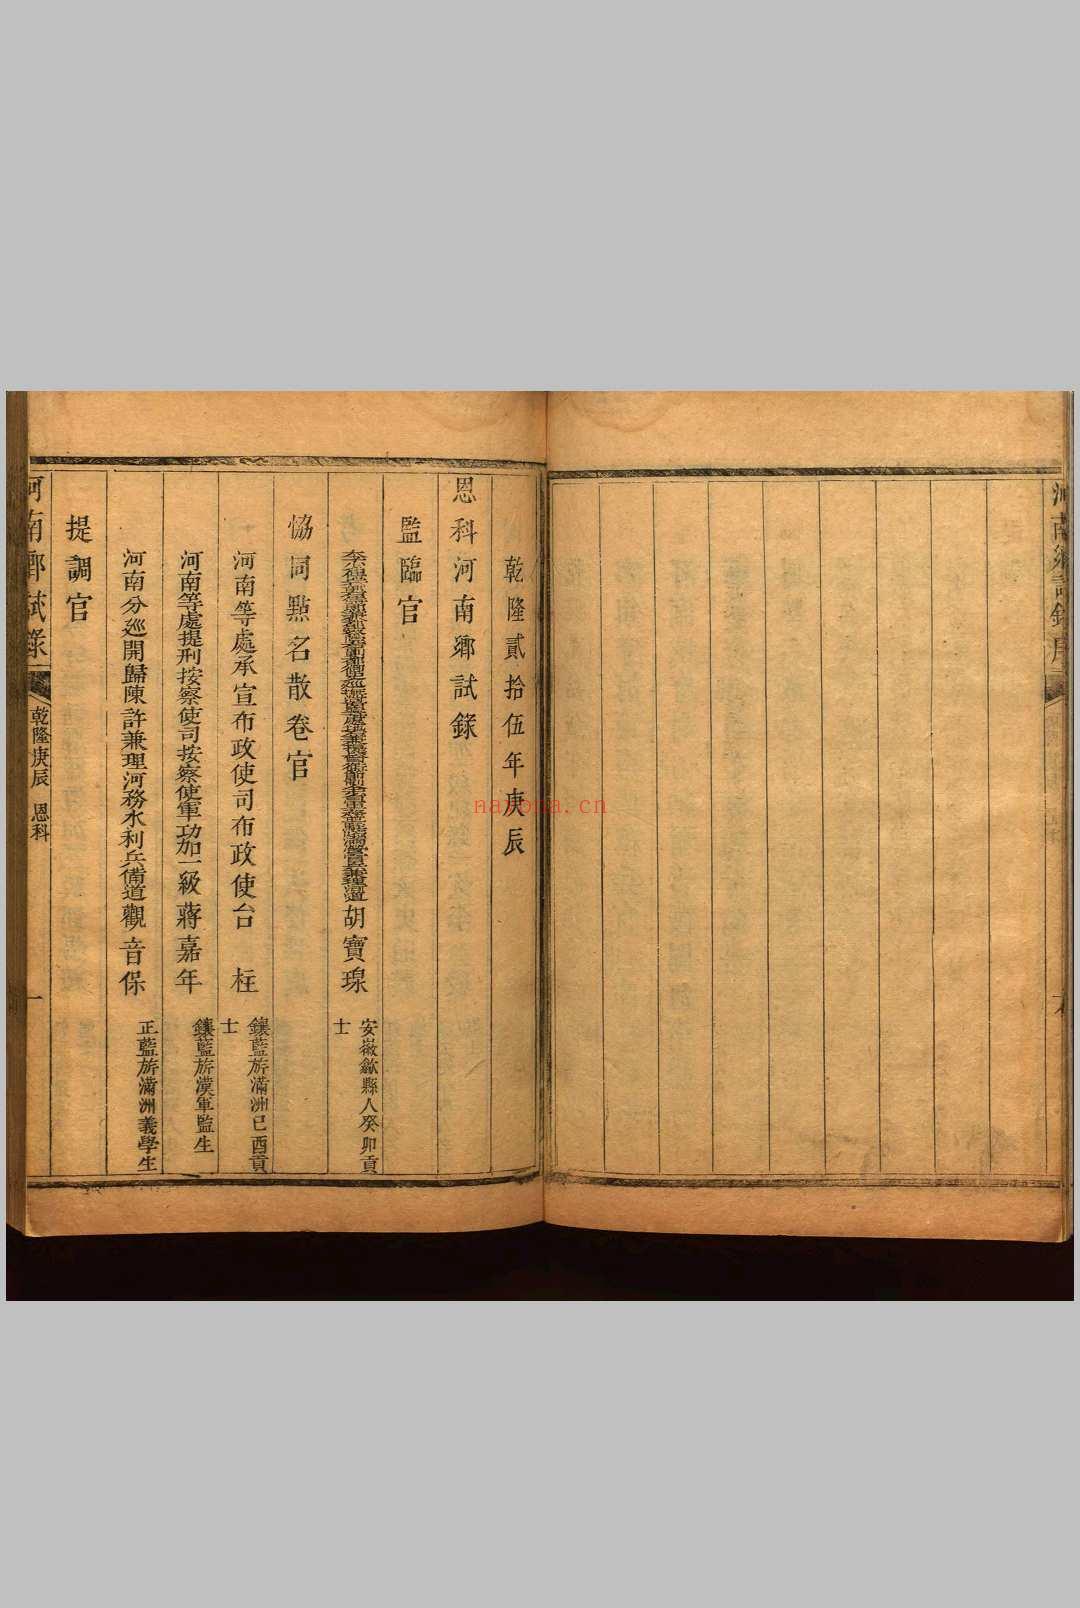 乾隆貳拾伍年庚辰
恩科河南鄉試錄
監臨官
胡寶瑔
安徽歙縣人癸卯貢
士
協同點名散卷官
河南等處承宣布政使司布政使台柱
鑲藍旂滿洲己酉貢
士
河南等處提刑按察使司按察使軍功加一級蔣嘉年
鑲藍旂漢軍監生
河南分廵開歸陳許兼理河務水利兵備道觀音保
正藍旂滿洲義學生
提調官
河南鄉試錄
乾隆庚辰 恩科
一
河南鄉試錄序
nayona.cn